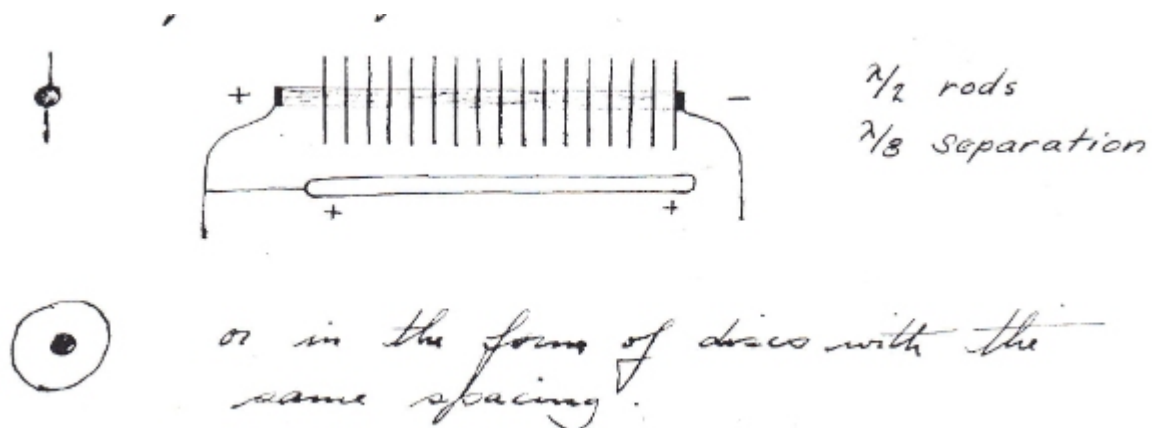 + −
λ/2 rods
λ/8 separation
+ +
or in the form of discs with the
same spacing.